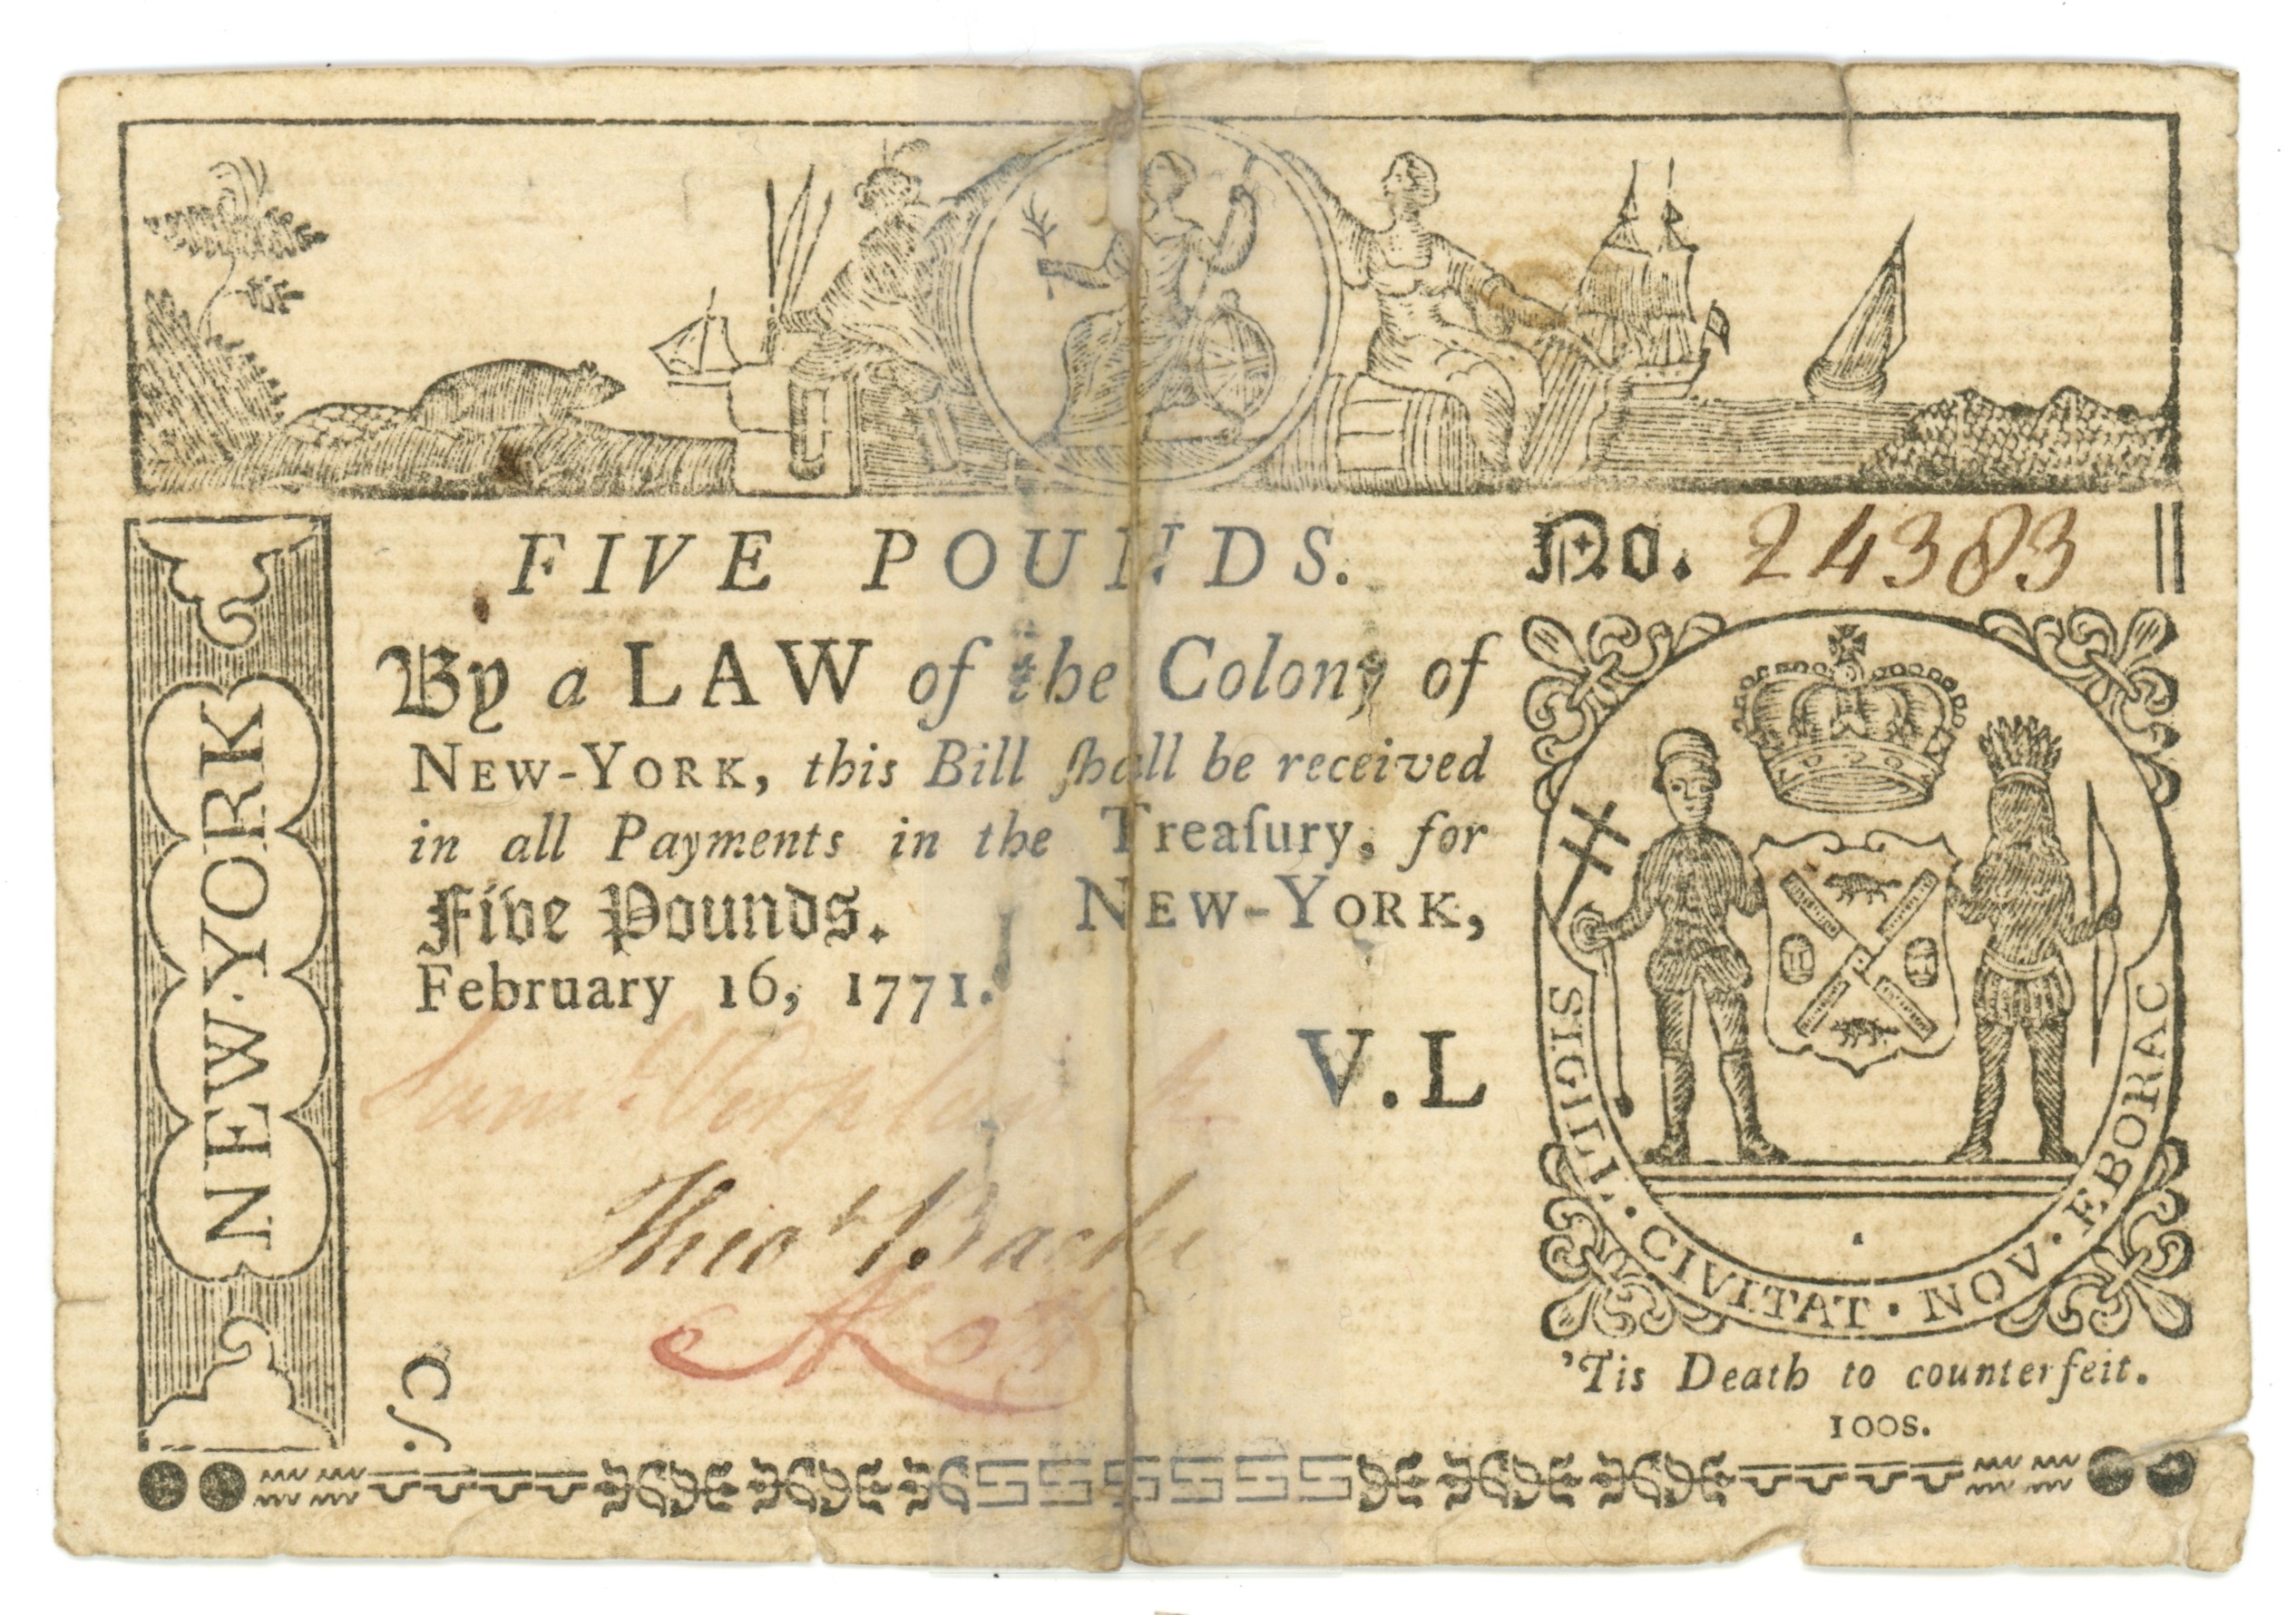 FIVE POUNDS. No. 24383
By a LAW of the Colony of
NEW-YORK, this Bill ſhall be received
in all Payments in the Treaſury, for
Five Pounds. NEW-YORK,
February 16, 1771.
V.L
Saml. Verplanck
Theoht. Bache
NEW·YORK
SIGILL·CIVITAT·NOV·EBORAC
'Tis Death to counterfeit.
100s.